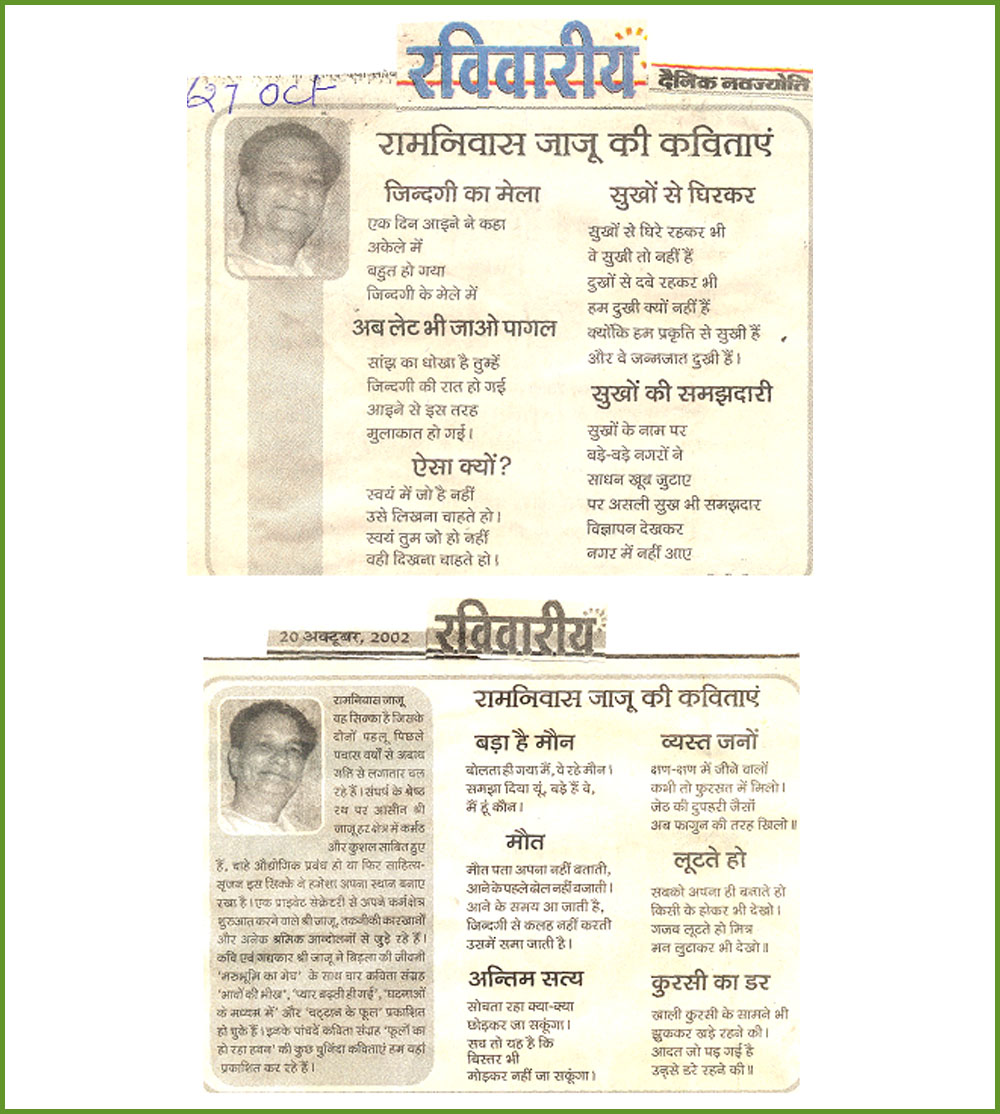 रविवारीय
27 Oct
दैनिक नवज्योति
रामनिवास जाजू की कविताएं
जिन्दगी का मेला
एक दिन आइने ने कहा
अकेले में
बहुत हो गया
जिन्दगी के मेले में
अब लेट भी जाओ पागल
सांझ का धोखा है तुम्हें
जिन्दगी की रात हो गई
आइने से इस तरह
मुलाकात हो गई।
ऐसा क्यों?
स्वयं में जो है नहीं
उसे लिखना चाहते हो।
स्वयं तुम जो हो नहीं
वही दिखना चाहते हो।
सुखों से घिरकर
सुखों से घिरे रहकर भी
वे सुखी तो नहीं हैं
दुखों से दबे रहकर भी
हम दुखी क्यों नहीं हैं
क्योंकि हम प्रकृति से सुखी हैं
और वे जन्मजात दुखी हैं।
सुखों की समझदारी
सुखों के नाम पर
बड़े-बड़े नगरों ने
साधन खूब जुटाए
पर असली सुख भी समझदार
विज्ञापन देखकर
नगर में नहीं आए
20 अक्टूबर, 2002
रविवारीय
रामनिवास जाजू
वह सिक्का है जिसके
दोनों पहलू पिछले
पचास वर्षों से अबाध
गति से लगातार चल
रहे हैं। संघर्ष के श्रेष्ठ
रथ पर आसीन श्री
जाजू हर क्षेत्र में कर्मठ
और कुशल साबित हुए
हैं, चाहे औद्योगिक प्रबंध हो या फिर साहित्य-
सृजन इस सिक्के ने हमेशा अपना स्थान बनाए
रखा है। एक प्राइवेट सेक्रेटरी से अपने कर्मक्षेत्र
शुरुआत करने वाले श्री जाजू, तकनीकी कारखानों
और अनेक श्रमिक आन्दोलनों से जुड़े रहे हैं।
कवि एवं गद्यकार श्री जाजू ने बिड़ला की जीवनी
'मरुभूमि का मेघ' के साथ चार कविता संग्रह
'भावों की भीख', 'प्यार बढ़ती ही गई', 'घटनाओं
के मध्यम में' और 'चट्टान के फूल' प्रकाशित
हो चुके हैं। इनके पांचवें कविता संग्रह 'फूलों का
हो रहा हवन' की कुछ चुनिंदा कविताएं हम यहां
प्रकाशित कर रहे हैं।
रामनिवास जाजू की कविताएं
बड़ा है मौन
बोलता ही गया मैं, वे रहे मौन।
समझा दिया यूं, बड़े हैं वे,
मैं हूं कौन।
मौत
मौत पता अपना नहीं बताती,
आने के पहले ढोल नहीं बजाती।
आने के समय आ जाती है,
जिन्दगी से कलह नहीं करती
उसमें समा जाती है।
अन्तिम सत्य
सोचता रहा क्या-क्या
छोड़कर जा सकूंगा।
सच तो यह है कि
बिस्तर भी
मोड़कर नहीं जा सकूंगा।
व्यस्त जनों
क्षण-क्षण में जीने वालों
कभी तो फुरसत में मिलो।
जेठ की दुपहरी जैसों
अब फागुन की तरह खिलो॥
लूटते हो
सबको अपना ही बनाते हो
किसी के होकर भी देखो।
गजब लूटते हो मित्र
मन लुटाकर भी देखो॥
कुरसी का डर
खाली कुरसी के सामने भी
झुककर खड़े रहने की।
आदत जो पड़ गई है
उससे डरे रहने की॥